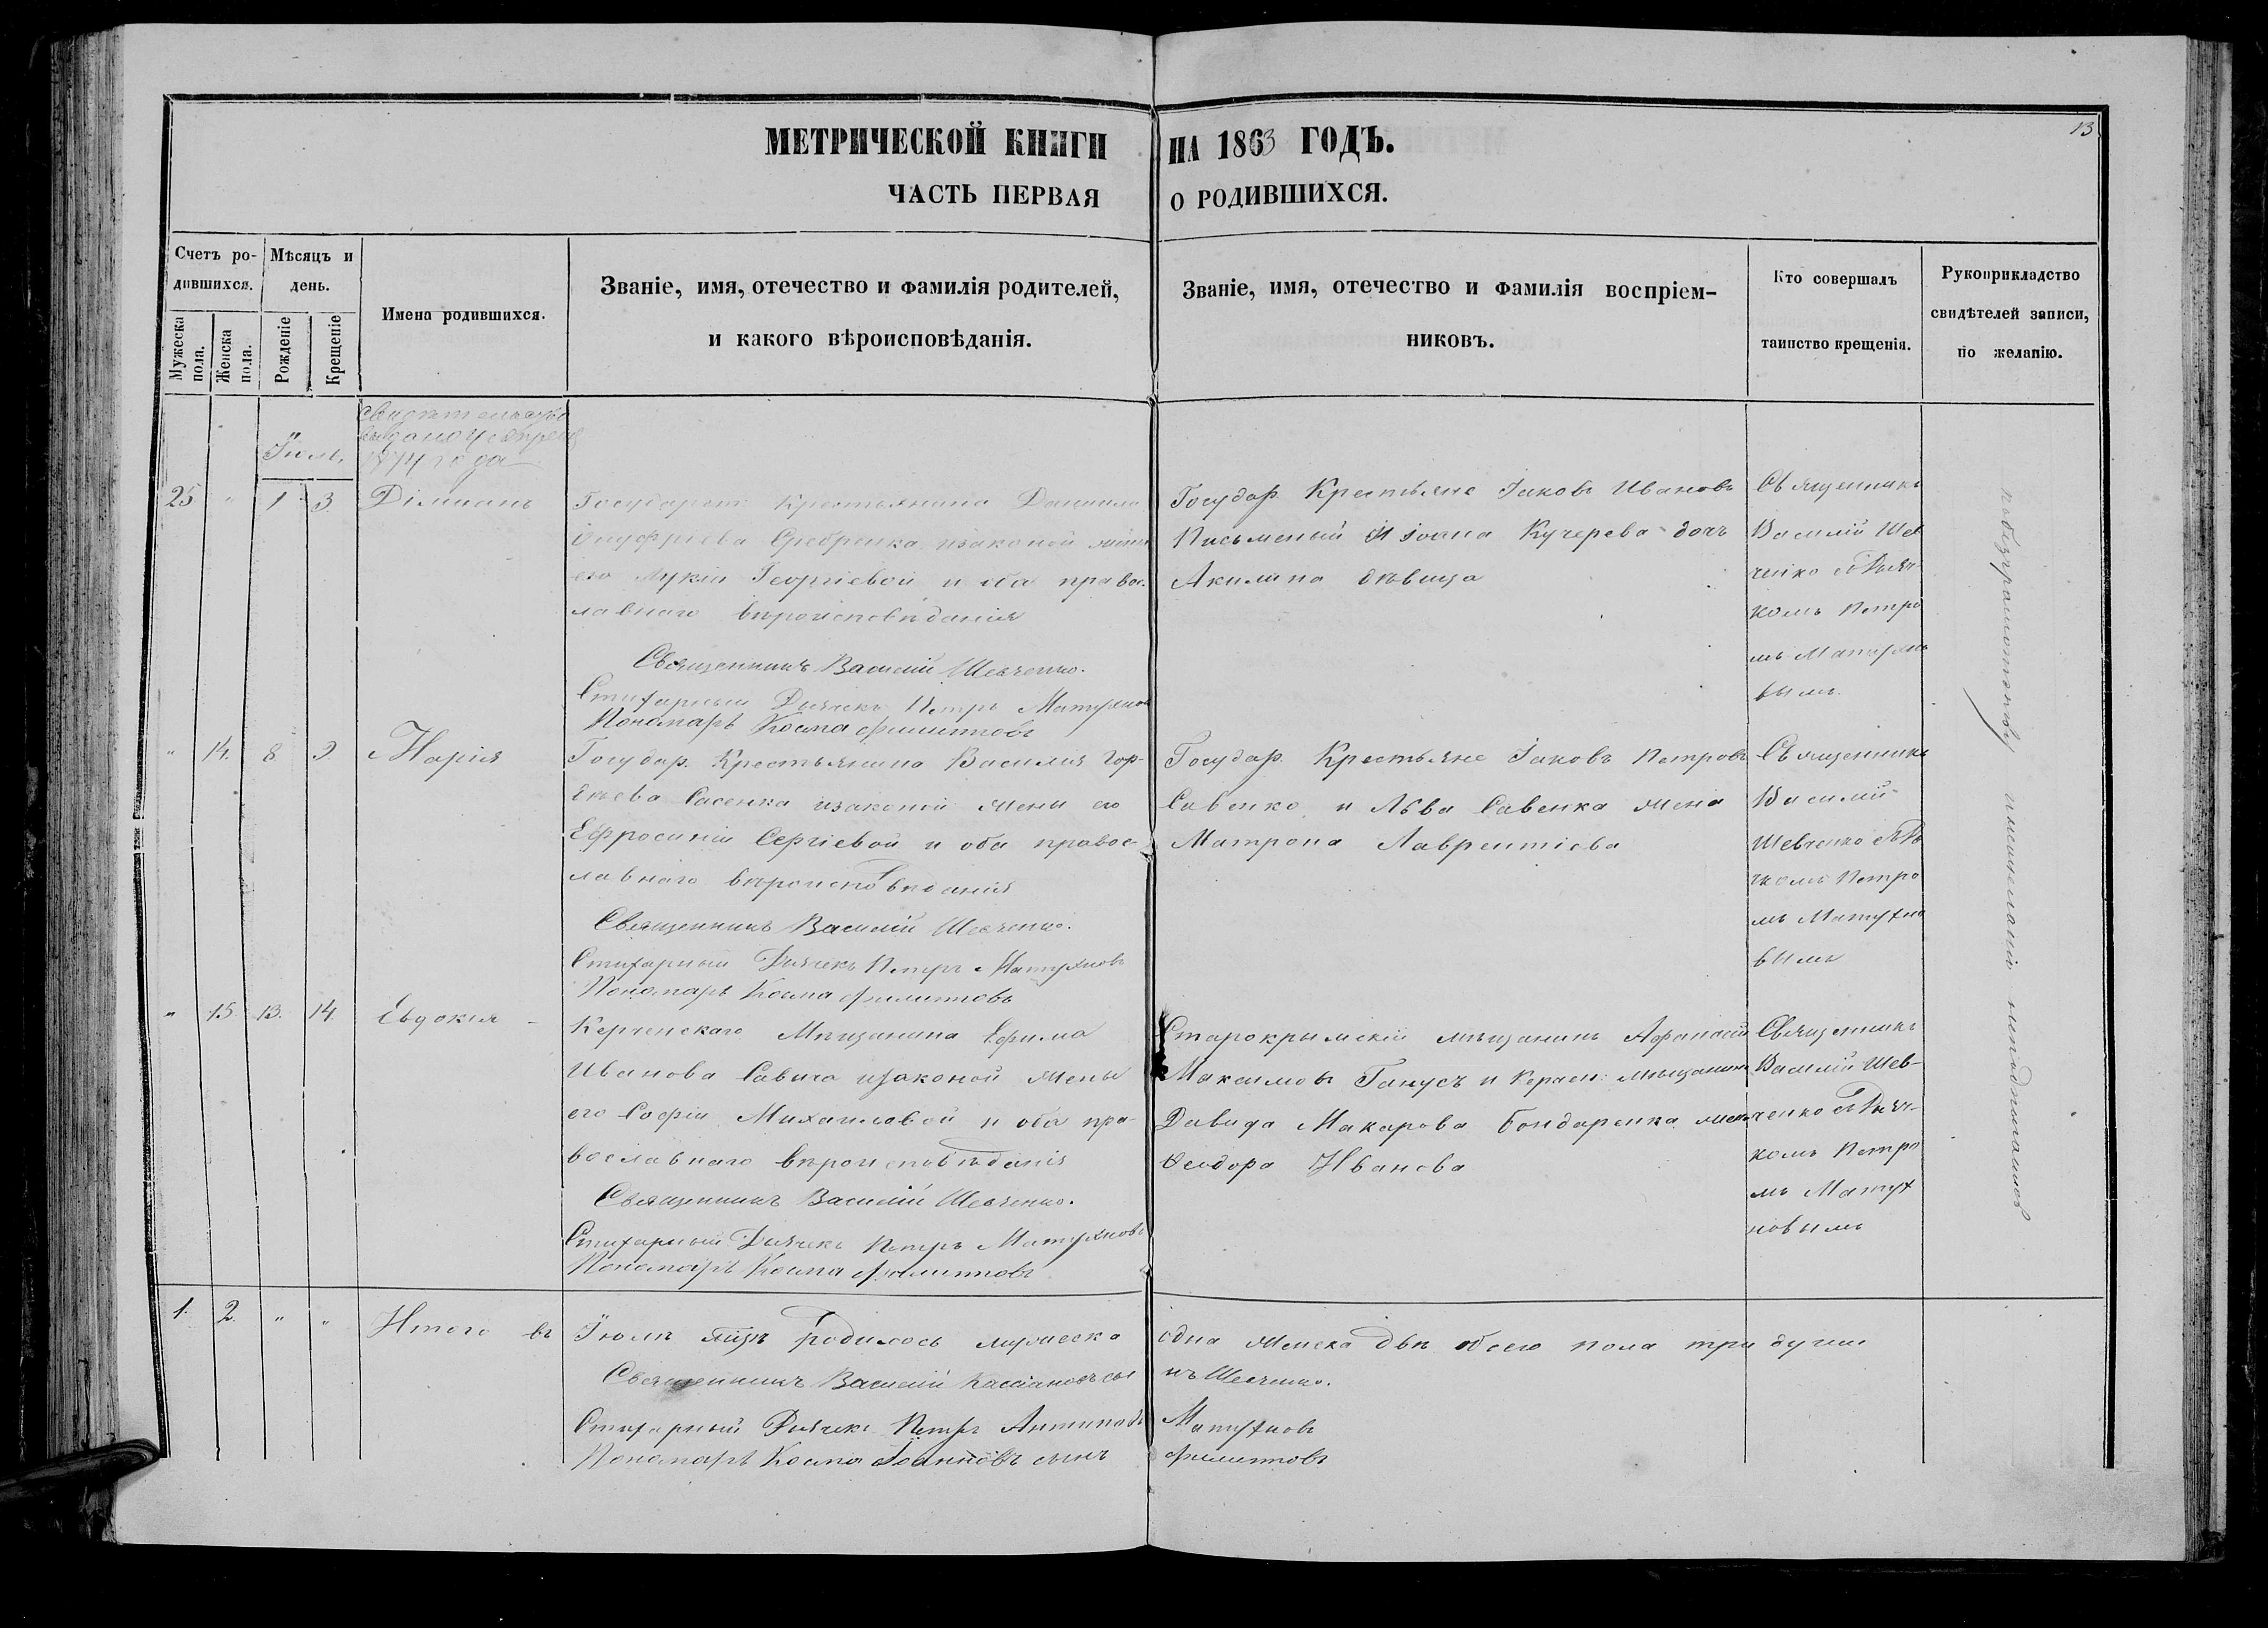 13
МЕТРИЧЕСКОЙ КНИГИ НА 1863 ГОДЪ.
ЧАСТЬ ПЕРВАЯ О РОДИВШИХСЯ.
Счетъ ро-
дившихся.
Мужеска пола.
Женска пола.
Мѣсяцъ и
день.
Рожденіе
Крещеніе
Имена родившихся.
Званіе, имя, отечество и фамилія родителей,
и какого вѣроисповѣданія.
Званіе, имя, отечество и фамилія воспріем-
никовъ.
Кто совершалъ
таинство крещенія.
Рукоприкладство
свидѣтелей записи,
по желанію.
года
25 " 1 3
Государст Крестьянина Даниила
Онуфріева законой
его Георгіевой и оба правос
лавнаго вѣроисповѣданія
Священникъ Василій Шевченко.
Стихарный Дьячекъ Петръ Матухновъ
Пономарь Косма Филиповъ
Государ. Крестьяне Іаковъ Ивановъ
Письменый И Іоана Кучерева дочь
Акилина дѣвица
Священникъ
Василій Шев
ченко съ Дьяч
комъ Петро
мъ Матухно
вымъ
" 14. 8 9 Марія
Государ. Крестьянина Василія Гор-
законой жены его
Ефросиніи Сергіевой и оба правос
лавнаго вѣроисповѣданія
Священникъ Василій Шевченко.
Стихарный Дьячекъ Петръ Матухновъ
Пономарь Косма Филиповъ
Государ. Крестьяне Іаковъ Петровъ
Савенко, и Льва Савенка жена
Матрона Лаврентіева
Священникъ
Василій
Шевченко съ Дья
чкомъ Петро
мъ Матухно
вымъ
" 15. 13. 14. Евдокія
Керченскаго Мѣщанина Ефима
Иванова Савича изаконой жены
его Софіи Михаиловой и оба пра-
вославнаго вѣроисповѣданія
Священникъ Василій Шевченко.
Стихарный Дьячекъ Петръ Матухновъ
Пономарь Косма Филиповъ
Старокрымскій мѣщанинъ Афанасій
Максимовъ Ганусъ и Керчен: мѣщанина
Давида Макарова Бондаренка жена
Ѳеодора Иванова
Священникъ
Василій Шев-
ченко съ Дьяч-
комъ Петро
мъ Матух
новымъ
1. 2. " " Итого въ Іюлѣ мцѣ родилось мужеска одна женска двѣ обоего пола три души
Священникъ Василій Кассіановъ сы нъ Шевченко.
Стихарный Дьячекъ Петръ Антиповъ Матухновъ
Пономарь Косма Іоанновъ сынъ Филиповъ